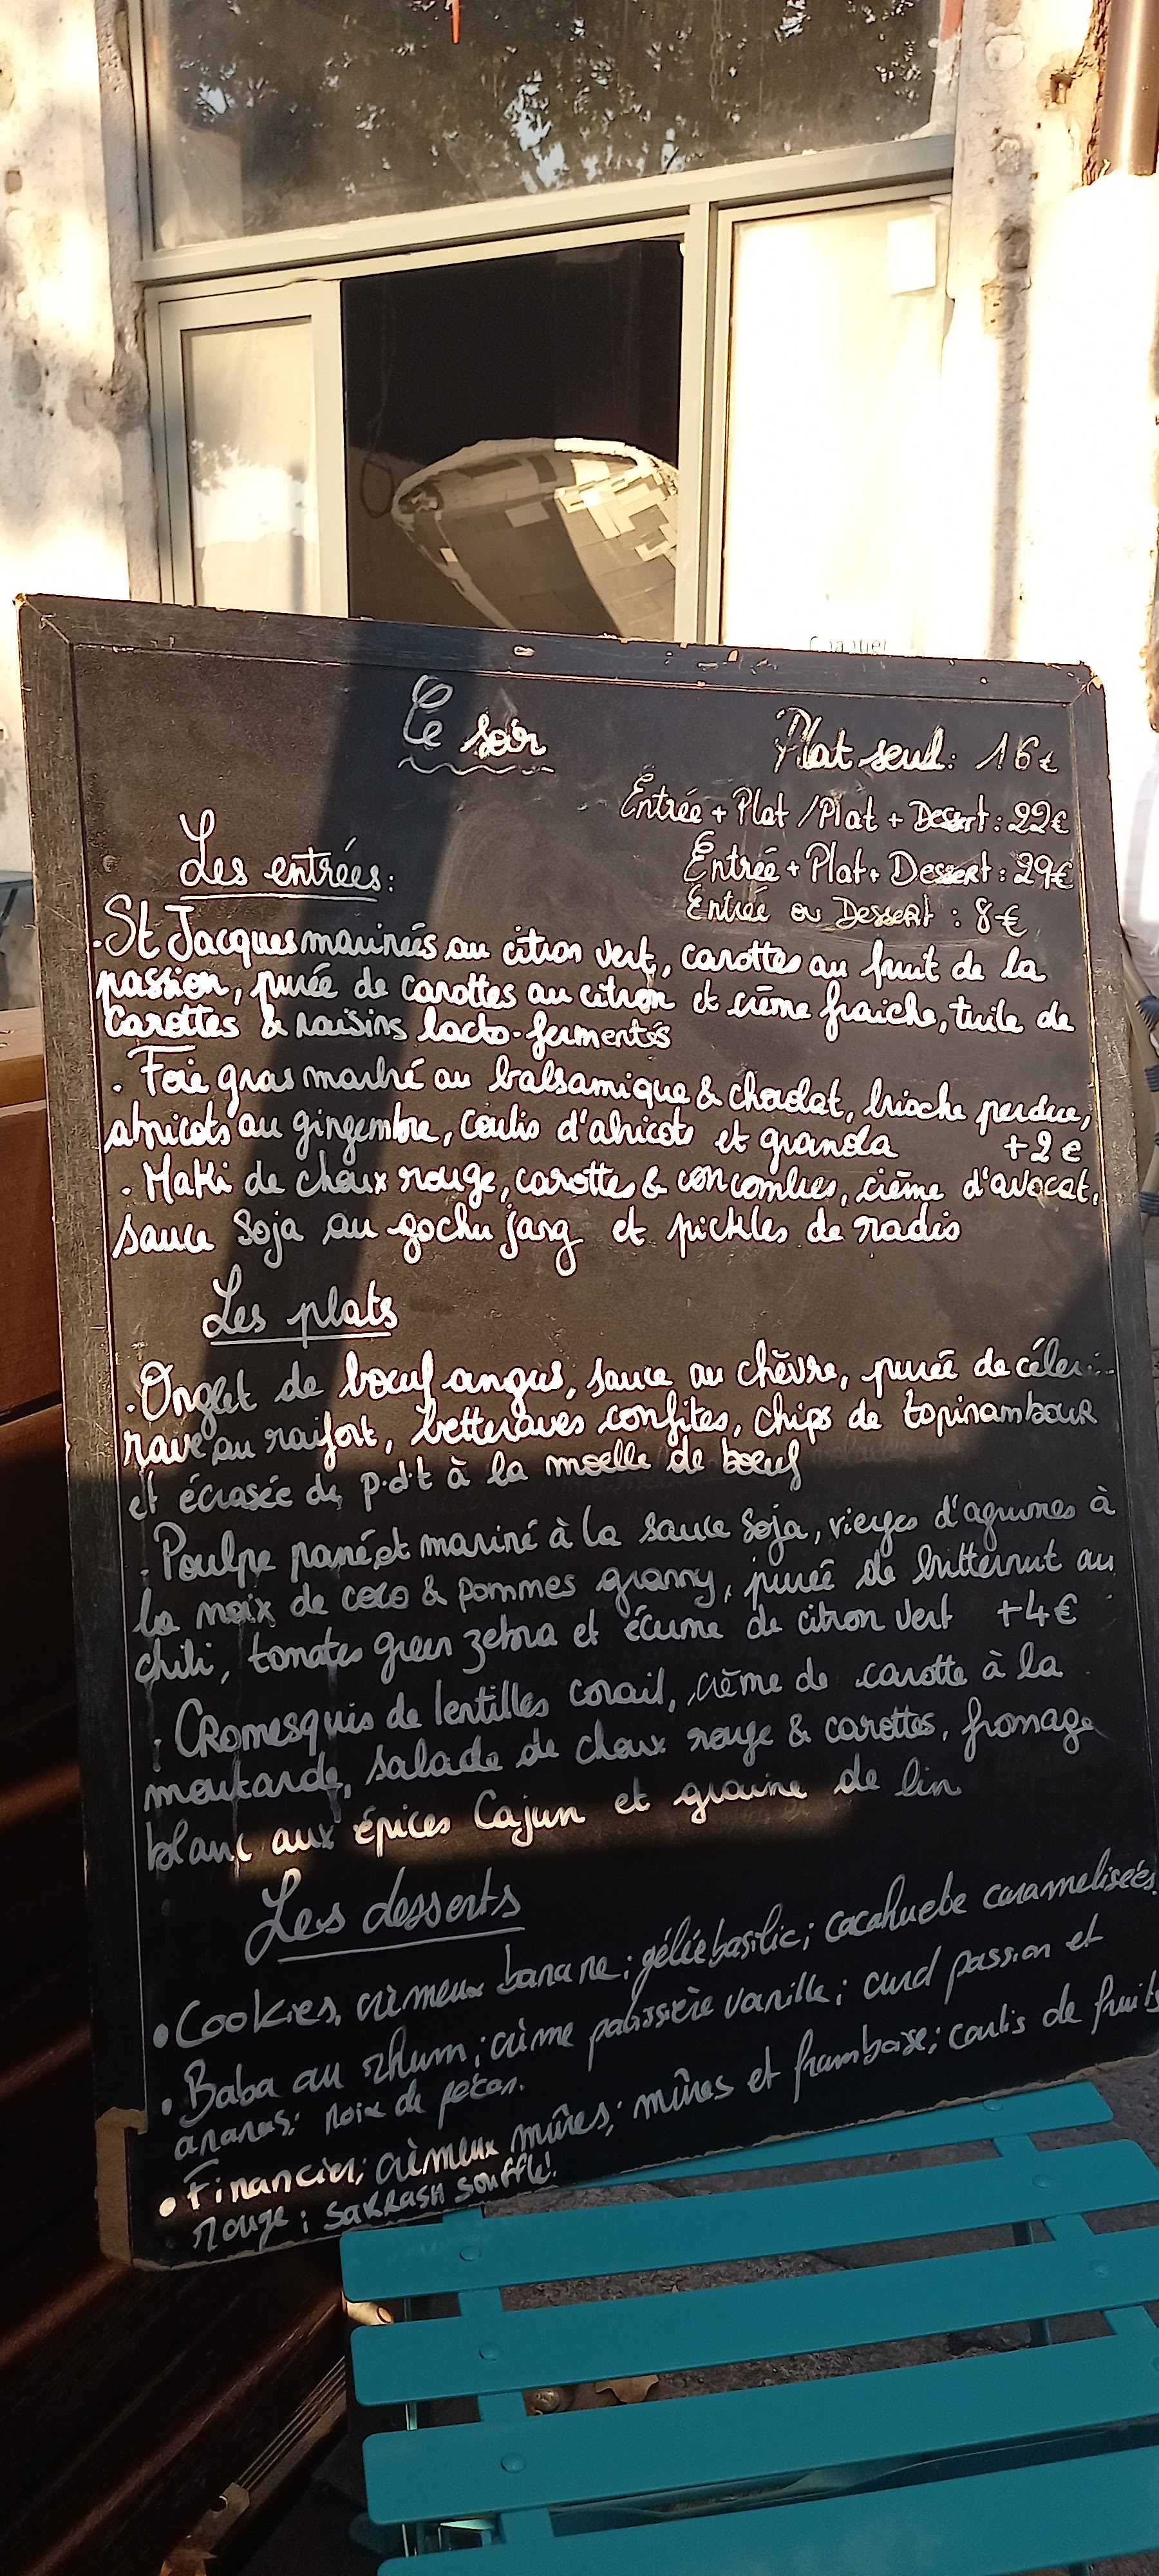 Ce soir
Plat seul: 16€
Entrée + Plat / Plat + Dessert: 22€
Entrée + Plat + Dessert: 29€
Entrée ou Dessert: 8€
Les entrées:
. St Jacques marinées au citron vert, carottes au fruit de la
passion, purée de carottes au citron et crème fraiche, tuile de
carottes & raisins lacto-fermentés
. Foie gras marbré au balsamique & chocolat, brioche perdue,
abricots au gingembre, coulis d'abricots et granola +2€
. Maki de choux rouge, carottes & concombres, crème d'avocat,
sauce soja au gochu jang et pickles de radis
Les plats
. Onglet de bœuf angus, sauce au chèvre, purée de céleri-
rave au raifort, betteraves confites, chips de topinambour
et écrasée de p.d.t à la moelle de bœuf
. Poulpe pané et mariné à la sauce soja, vierges d'agrumes à
la noix de coco & pommes granny, purée de butternut au
chili, tomates green zebra et écume de citron vert +4€
. Cromesquis de lentilles corail, crème de carotte à la
moutarde, salade de choux rouge & carottes, fromage
blanc aux épices Cajun et graine de lin
Les desserts
• Cookies, crèmeux banane; gélée basilic; cacahuete caramelisées.
• Baba au rhum; crème patissière vanille; curd passion et
ananas; noix de pecan.
• Financier; crèmeux mûres; mûres et framboise; coulis de fruits
rouge; sarrasin soufflé!